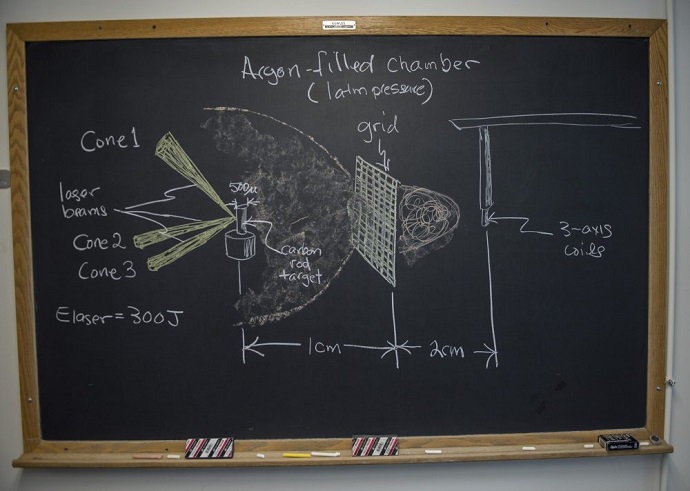 Argon-filled chamber
(1atm pressure)
grid
Cone 1
500μ
laser
beams
Cone 2
Cone 3
carbon
rod
target
3-axis
coils
Elaser = 300J
1cm
2cm